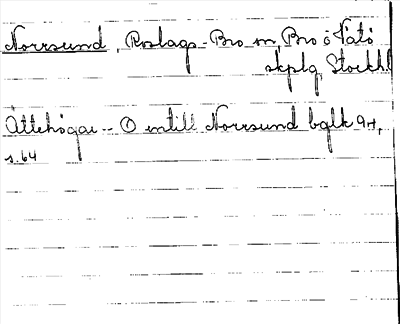 Norrsund, Roslags-Bro sn, Bro o Vätö
skplg, Stockh.
Ättehögar -- O intill Norrsund bglk 94,
s. 64